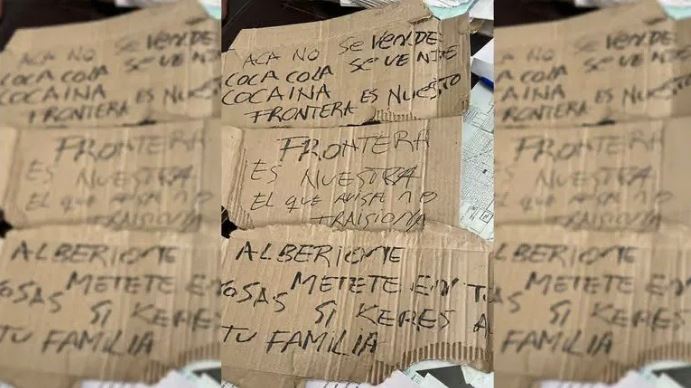 ACA NO SE VENDE
COCA COLA SE VENDE
COCAINA
FRONTERA ES NUESTO
FRONTERA
ES NUESTRA
EL QUE AVISA NO
TRAISIONA
ALBERIONE
METETE EN T
COSAS SI KERES A
TU FAMILIA